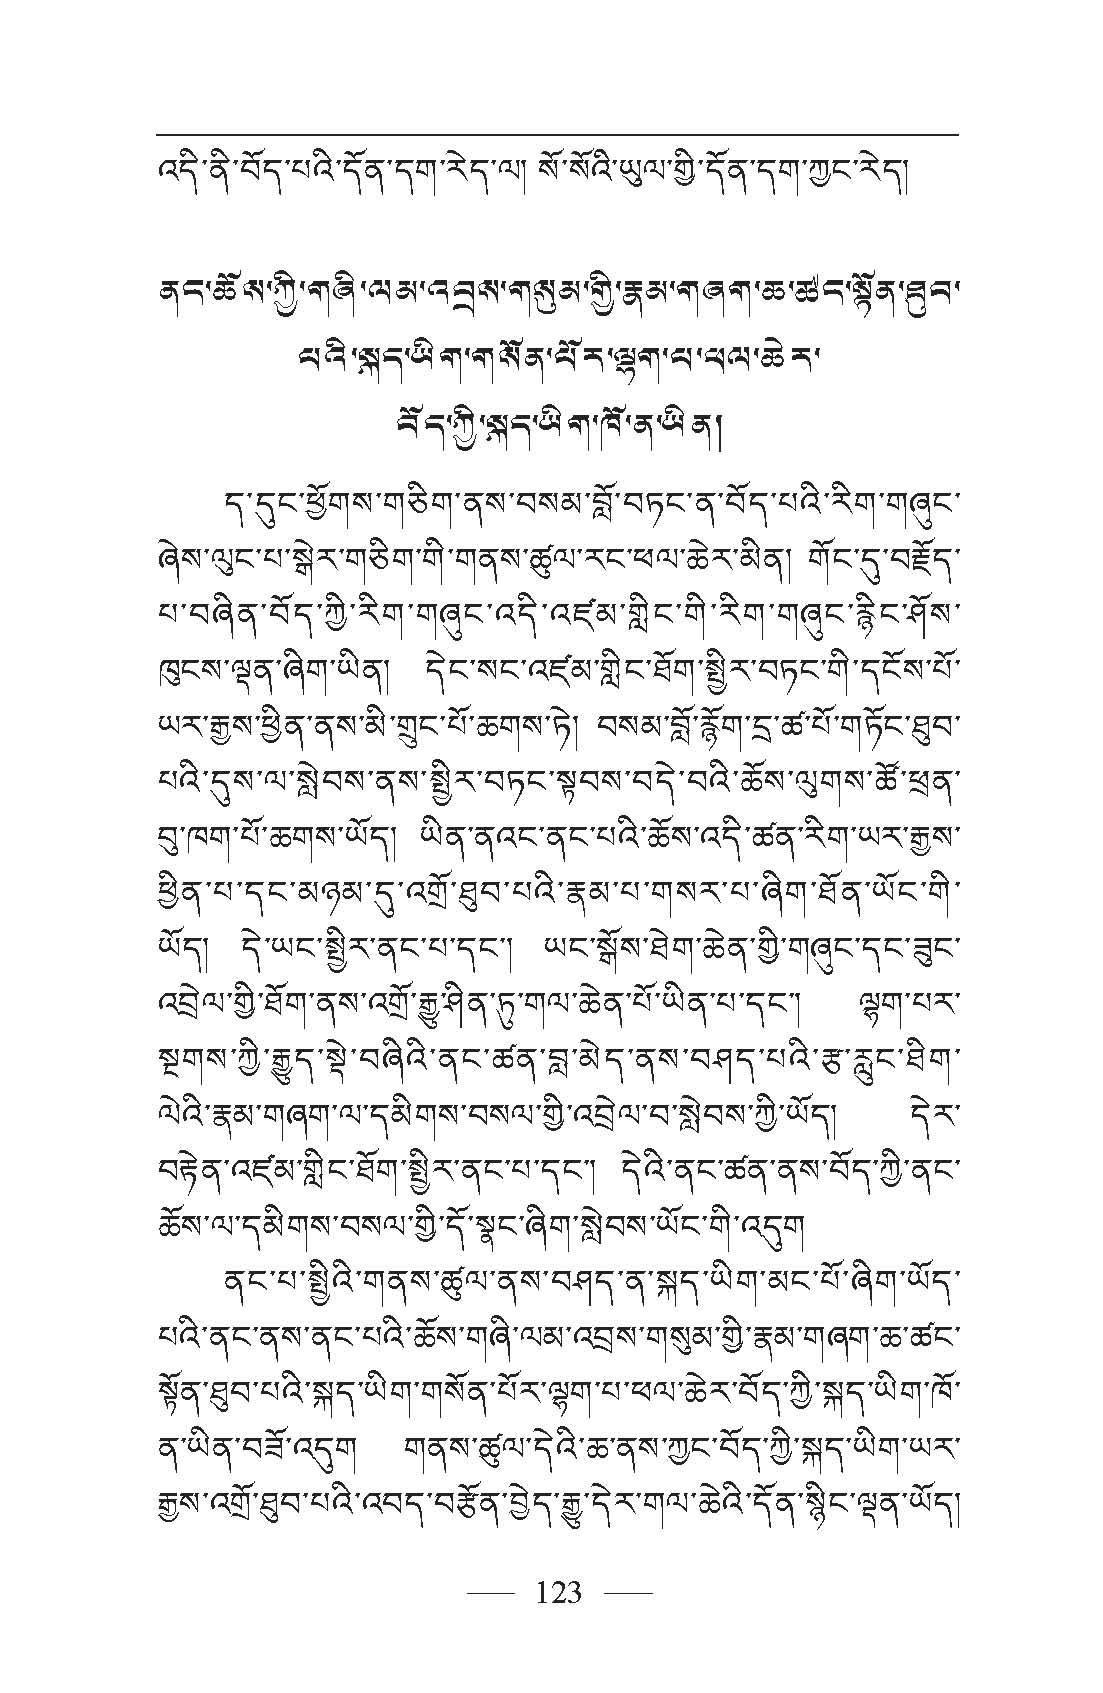 འདི་ནི་བོད་པའི་དོན་དག་རེད་ལ། སོ་སོའི་ཡུལ་གྱི་དོན་དག་ཀྱང་རེད།
ནང་ཆོས་ཀྱི་གཞི་ལམ་འབྲས་གསུམ་གྱི་རྣམ་གཞག་ཆ་ཚང་སྟོན་ཐུབ་
པའི་སྐད་ཡིག་གསོན་པོར་ལྷག་པ་ཕལ་ཆེར་
བོད་ཀྱི་སྐད་ཡིག་ཁོ་ན་ཡིན།
ད་དུང་ཕྱོགས་གཅིག་ནས་བསམ་བློ་བཏང་ན་བོད་པའི་རིག་གཞུང་
ཞེས་ལུང་པ་སྒེར་གཅིག་གི་གནས་ཚུལ་རང་ཕལ་ཆེར་མིན། གོང་དུ་བརྗོད་
པ་བཞིན་བོད་ཀྱི་རིག་གཞུང་འདི་འཛམ་གླིང་གི་རིག་གཞུང་རྙིང་ཤོས་
ཁུངས་ལྡན་ཞིག་ཡིན། དེང་སང་འཛམ་གླིང་ཐོག་སྤྱིར་བཏང་གི་དངོས་པོ་
ཡར་རྒྱས་ཕྱིན་ནས་མི་གྲུང་པོ་ཆགས་ཏེ། བསམ་བློ་རྙོག་དྲ་ཚ་པོ་གཏོང་ཐུབ་
པའི་དུས་ལ་སླེབས་ནས་སྤྱིར་བཏང་སྟབས་བདེ་བའི་ཆོས་ལུགས་ཚོ་ཕྲན་
བུ་ཁག་པོ་ཆགས་ཡོད། ཡིན་ནའང་ནང་པའི་ཆོས་འདི་ཚན་རིག་ཡར་རྒྱས་
ཕྱིན་པ་དང་མཉམ་དུ་འགྲོ་ཐུབ་པའི་རྣམ་པ་གསར་པ་ཞིག་ཐོན་ཡོང་གི་
ཡོད། དེ་ཡང་སྤྱིར་ནང་པ་དང་། ཡང་སྒོས་ཐེག་ཆེན་གྱི་གཞུང་དང་ཟུང་
འབྲེལ་གྱི་ཐོག་ནས་འགྲོ་རྒྱུ་ཤིན་ཏུ་གལ་ཆེན་པོ་ཡིན་པ་དང་། ལྷག་པར་
སྔགས་ཀྱི་རྒྱུད་སྡེ་བཞིའི་ནང་ཚན་བླ་མེད་ནས་བཤད་པའི་རྩ་རླུང་ཐིག་
ལེའི་རྣམ་གཞག་ལ་དམིགས་བསལ་གྱི་འབྲེལ་བ་སླེབས་ཀྱི་ཡོད། དེར་
བརྟེན་འཛམ་གླིང་ཐོག་སྤྱིར་ནང་པ་དང་། དེའི་ནང་ཚན་ནས་བོད་ཀྱི་ནང་
ཆོས་ལ་དམིགས་བསལ་གྱི་དོ་སྣང་ཞིག་སླེབས་ཡོང་གི་འདུག
ནང་པ་སྤྱིའི་གནས་ཚུལ་ནས་བཤད་ན་སྐད་ཡིག་མང་པོ་ཞིག་ཡོད་
པའི་ནང་ནས་ནང་པའི་ཆོས་གཞི་ལམ་འབྲས་གསུམ་གྱི་རྣམ་གཞག་ཆ་ཚང་
སྟོན་ཐུབ་པའི་སྐད་ཡིག་གསོན་པོར་ལྷག་པ་ཕལ་ཆེར་བོད་ཀྱི་སྐད་ཡིག་ཁོ་
ན་ཡིན་བཟོ་འདུག གནས་ཚུལ་དེའི་ཆ་ནས་ཀྱང་བོད་ཀྱི་སྐད་ཡིག་ཡར་
རྒྱས་འགྲོ་ཐུབ་པའི་འབད་བརྩོན་བྱེད་རྒྱུ་དེར་གལ་ཆེའི་དོན་སྙིང་ལྡན་ཡོད།
123